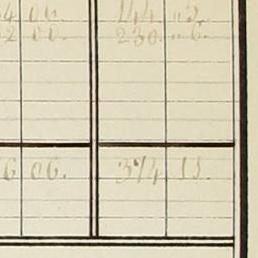 4 00. 144 05.
2 00. 230. 06.
6 06. 374 11.